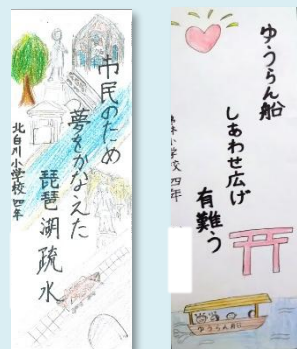 市民のため
夢をかなえた
琵琶湖疏水
北白川小学校 四年
ゆうらん船
しあわせ広げ
有難う
小学校 四年
ゆうらん船